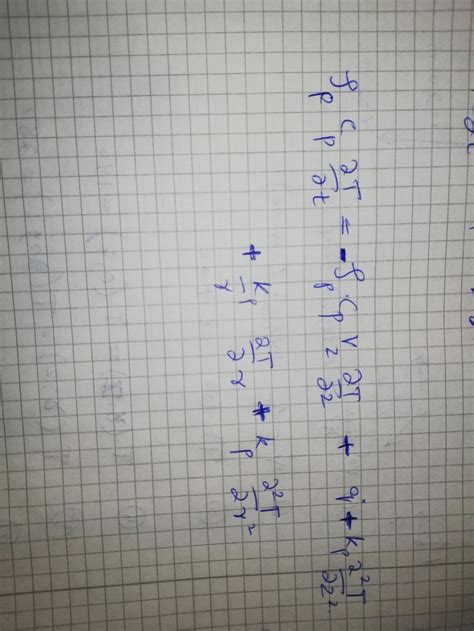 ρ_p C_p ∂T/∂t = -ρ_p C_p V_z ∂T/∂z + q + k_p ∂²T/∂z²
+ k_p/r ∂T/∂r + k_p ∂²T/∂r²